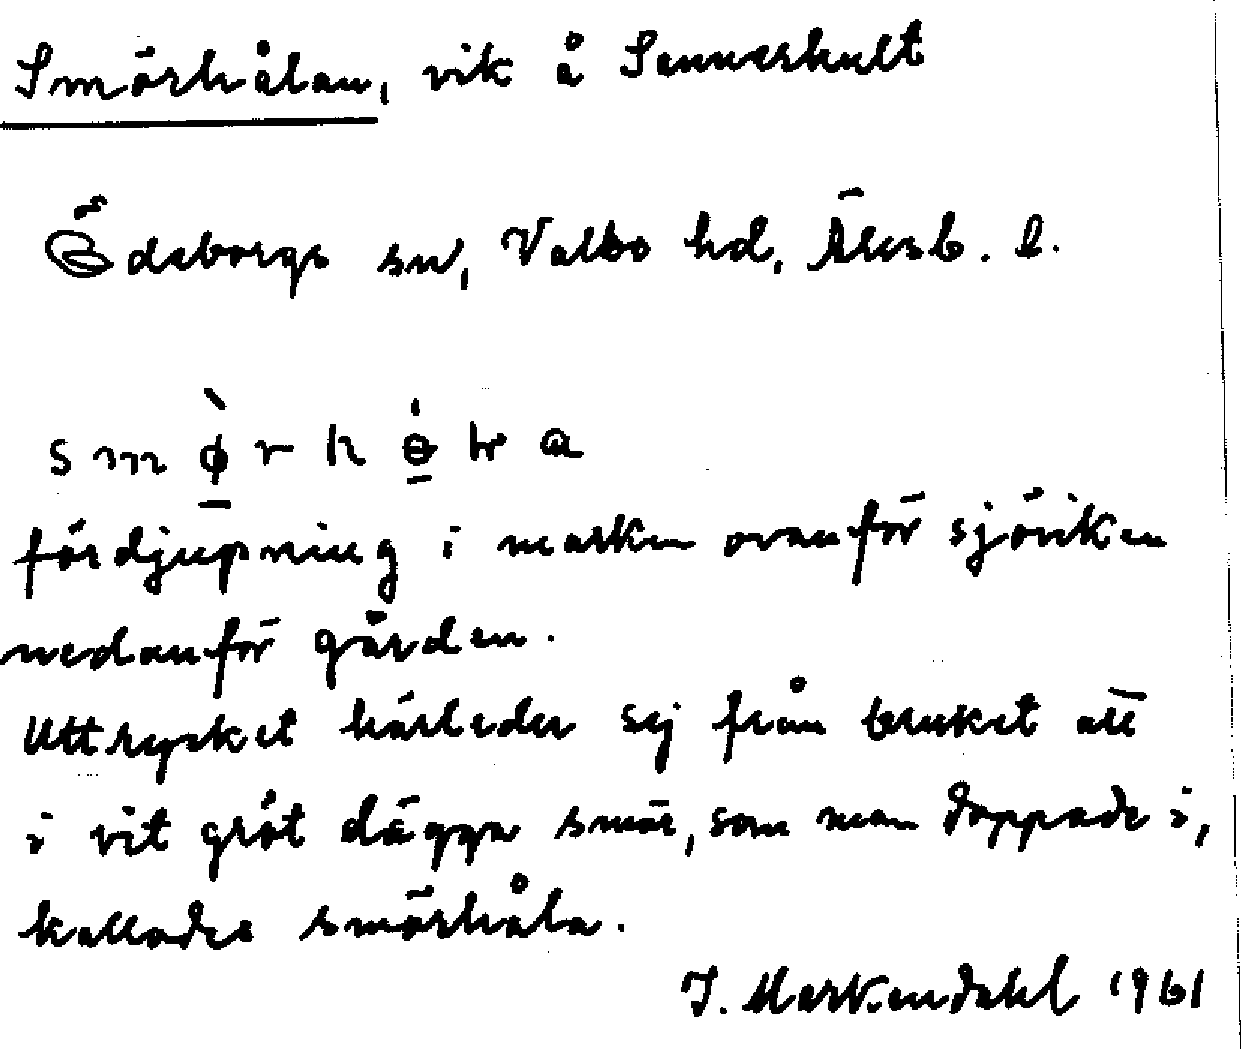 Smörhålan, vik å Sannerhult
Ödeborgs sn, Valbo hd, Älvsb. l.
smø̱̀rhɵ̱́ɽa
fördjupning i marken ovanför sjöviken
nedanför gården.
Uttrycket härleder sej från bruket att
i vit gröt lägga smör, som man doppade i,
kallades smörhåla.
J. Markendahl 1961